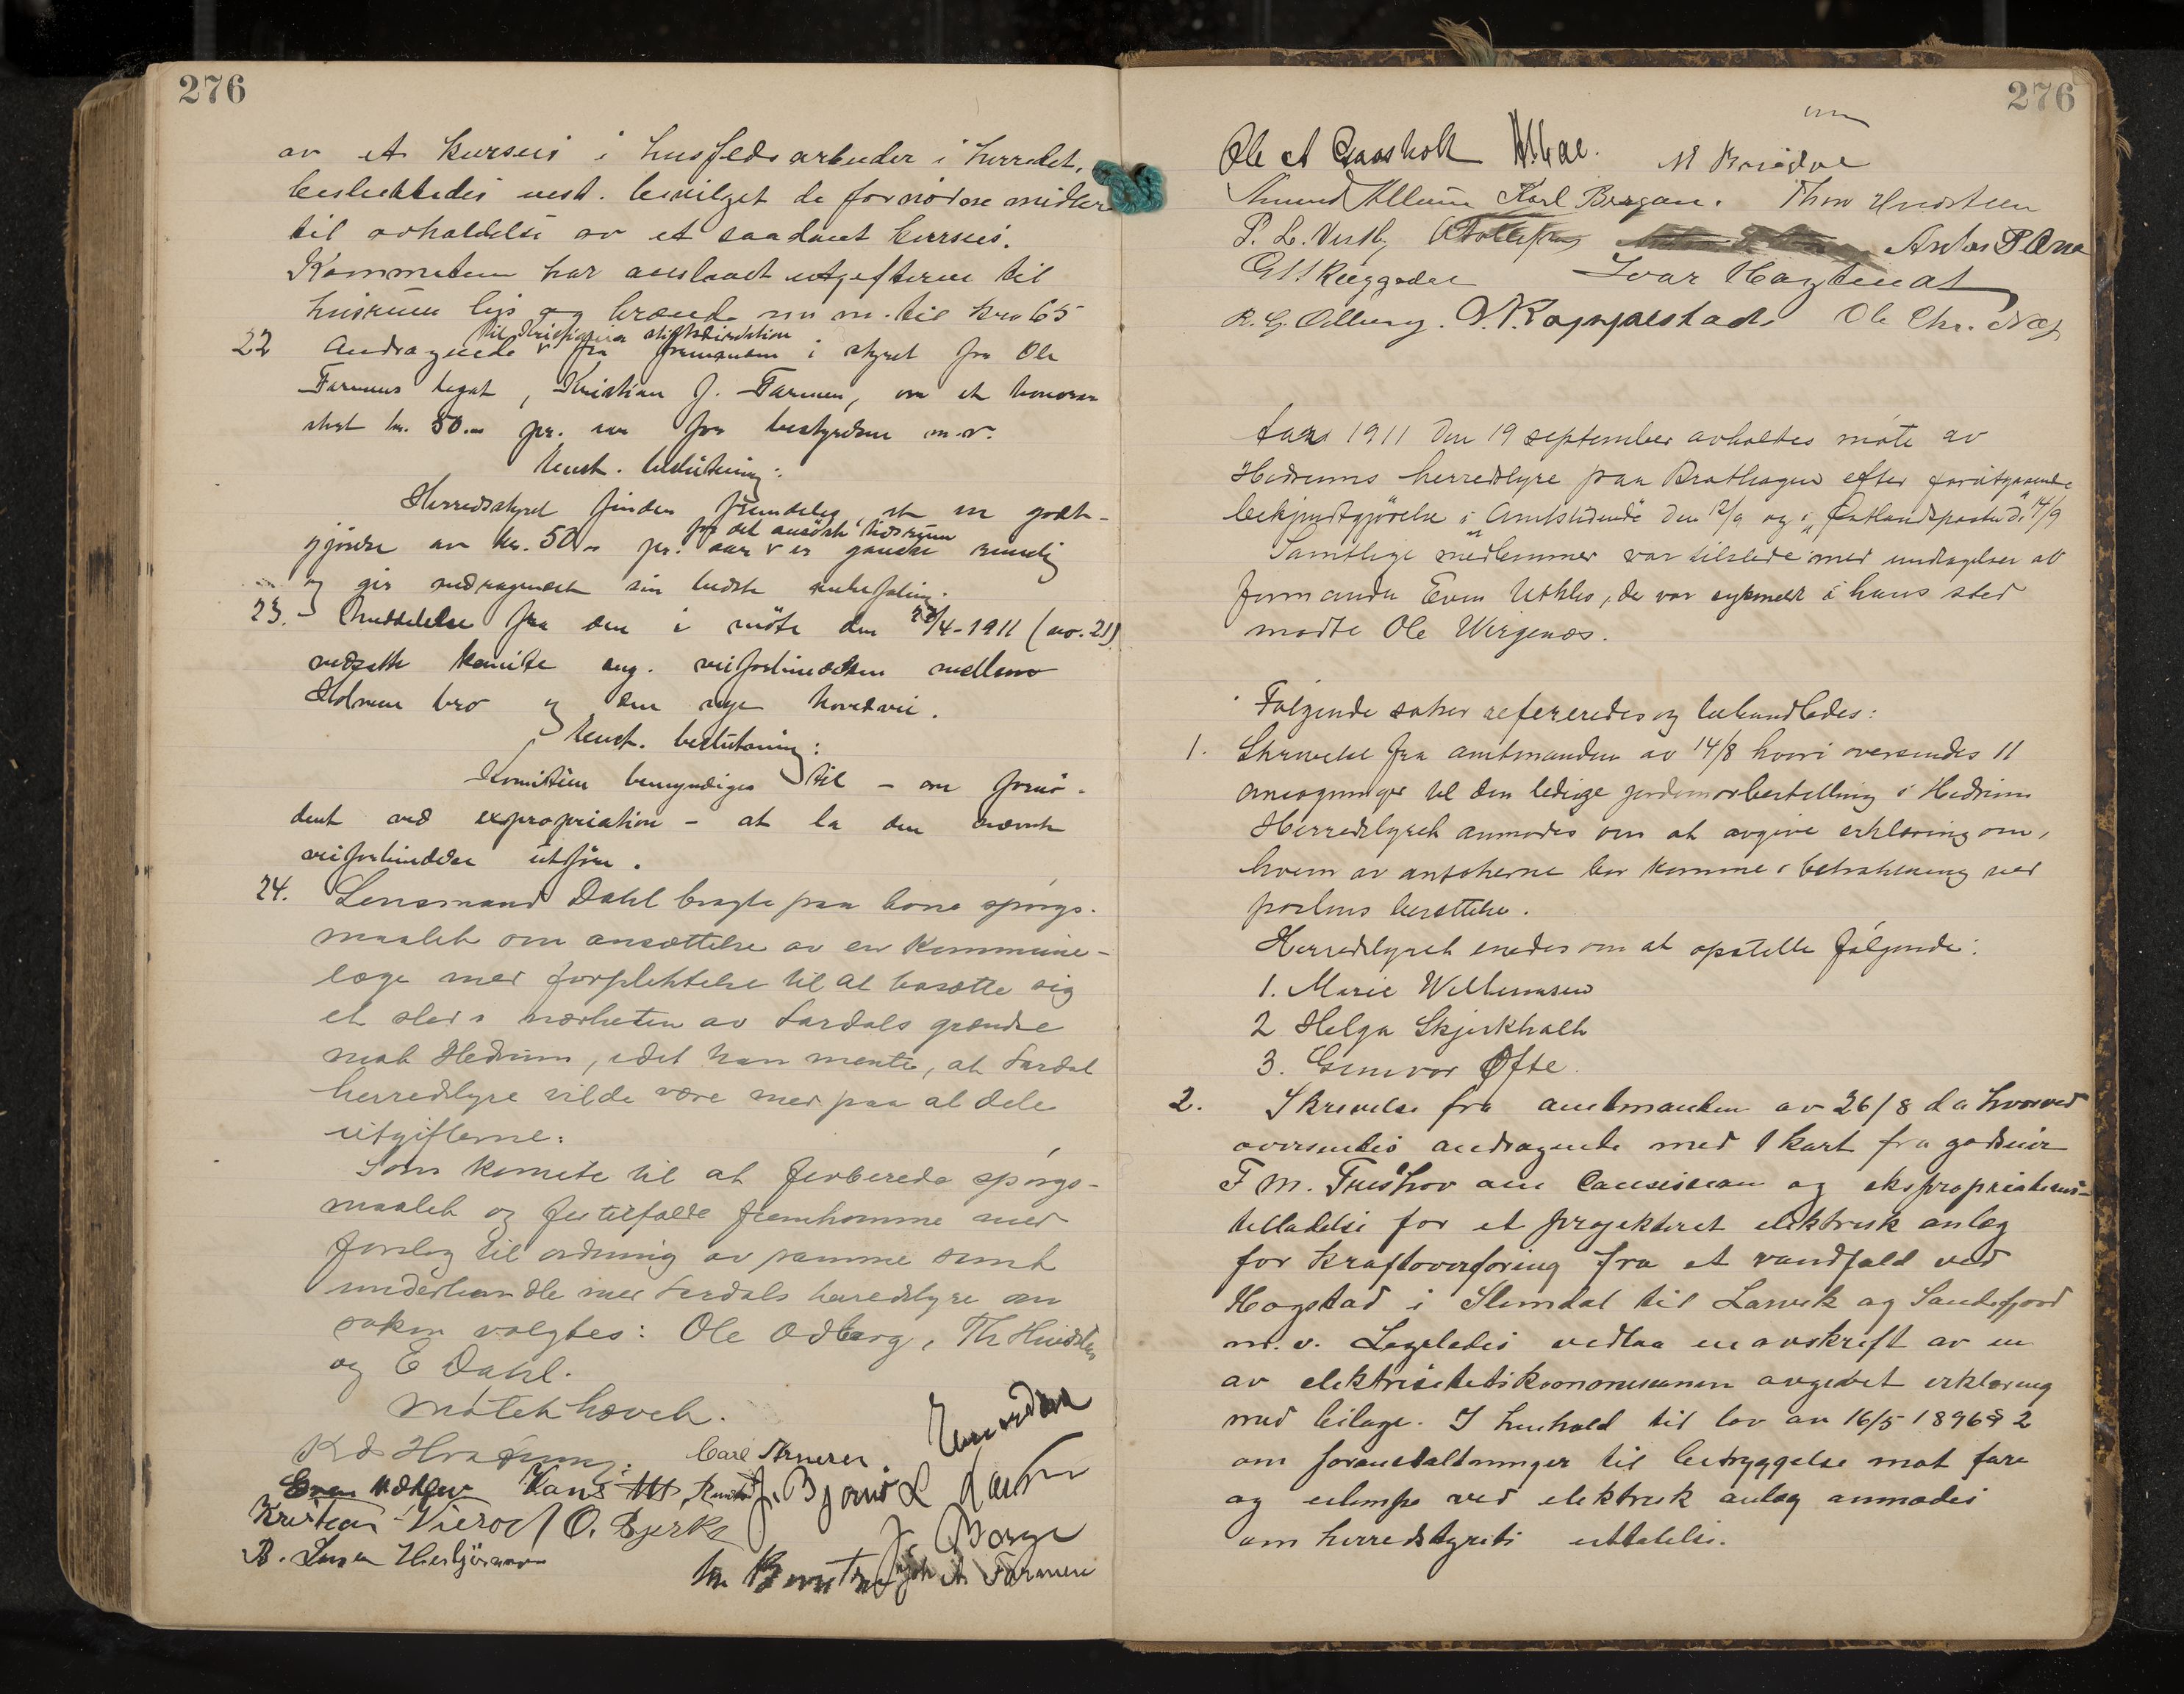 276
av et kursus i husflidsarbeider i herredet,
besluttedes enst. bevilget de fornødne midler
til avholdelse av et saadant kursus.
Kommiteen har anslaaet utgifterne til
husrum lys og brænde m m. til kr 65
til Kristiania stiftsdirektion
22 Andragende v fra formanden i styret for Ole
Farmens legat, Kristian J. Farmen, om et honorar
stort kr. 50.00 pr. aar for bestyrelsen m.v.
Enst. beslutning:
Herredsstyret finder fremdeles at en godt-
for det ansøkte tidsrum
gjørelse av kr. 50.00 pr. aar v er ganske rimelig
og gir andragendet sin bedste anbefaling.
23. Meddelelse fra den i møte den 22/4-1911 (no. 21)
nedsatte komite ang. veiforbindelsen mellem
Holmen bro og den nye hovedvei.
Enst. beslutning:
Komiteen bemyndiges til - om fornø-
dent ved expropriation - at la den nævnte
veiforbindelse utføre.
24. Lensmand Dahl bragte paa bane spørgs-
maalet om ansættelse av en kommune-
læge med forpliktelse til at bosætte sig
et sted i nærheten av Lardals grændse
mot Hedrum, idet han mente, at Lardal
herredstyre vilde være med paa at dele
utgifterne.
Som komite til at forberede spørgs-
maalet og fertilfælde fremkomme med
forslag til ordning av samme samt
underhandle med Lardals herredstyre om
saken valgtes: Ole Odberg, Th Hvidsten
og E Dahl.
Møtet hævet.
Carl Arnesen.
Even Uthlev Hans
Kristian Vierod O. Bjerke J. Borge
B. Larsen
A Farmen
276
Ole A Gaasholt M Brisdoe
Amund Allum Karl Bergan. Thor Hvidsteen
P. L. Vestby Anton P Ono
Ivar Hagtvedt
R. G. Odberg. N. Roppestad. Ole Chr. Næs
Aar 1911 den 19 september avholdtes møte av
Hedrums herredstyre paa Brathagen efter forutgaaende
bekjendtgjørelse i "Amtstidende" den 12/9 og i "Østlandsposten" d. 14/9
Samtlige medlemmer var tilstede med undtagelse av
formanden Even Uthlev, der var sykmeldt i hans sted
møtte Ole Wirgenæs.
Følgende saker refereredes og behandledes:
1. Skrivelse fra amtmanden av 14/8 hvori oversendes 11
ansøgninger til den ledige jordmorbestilling i Hedrum
Herredstyret anmodes om at avgive erklæring om,
hvem av ansøkerne bør komme i betraktning ved
postens besættelse.
Herredstyret enedes om at opstille følgende:
1. Marie Willumsen
2 Helga Skjerkholt
3. Gunvor Øfte.
2. Skrivelse fra amtmanden av 26/8 d a hvorved
oversendes andragende med 1 kart fra godseier
F M. Treschow om Consession og ekspropriations-
tilladelse for et projekteret elektrisk anlæg
for kraftoverføring fra et vandfald ved
Hogstad i Slemdal til Larvik og Sandefjord
m. v. Ligeledes vedlaa en avskrift av en
av elektrisitetskommissionen avgivet erklæring
med bilage. I henhold til lov av 16/5 1896 § 2
om foranstaltninger til betryggelse mot fare
og ulempe ved elektrisk anlæg anmodes
om herredstyrets uttalelse.